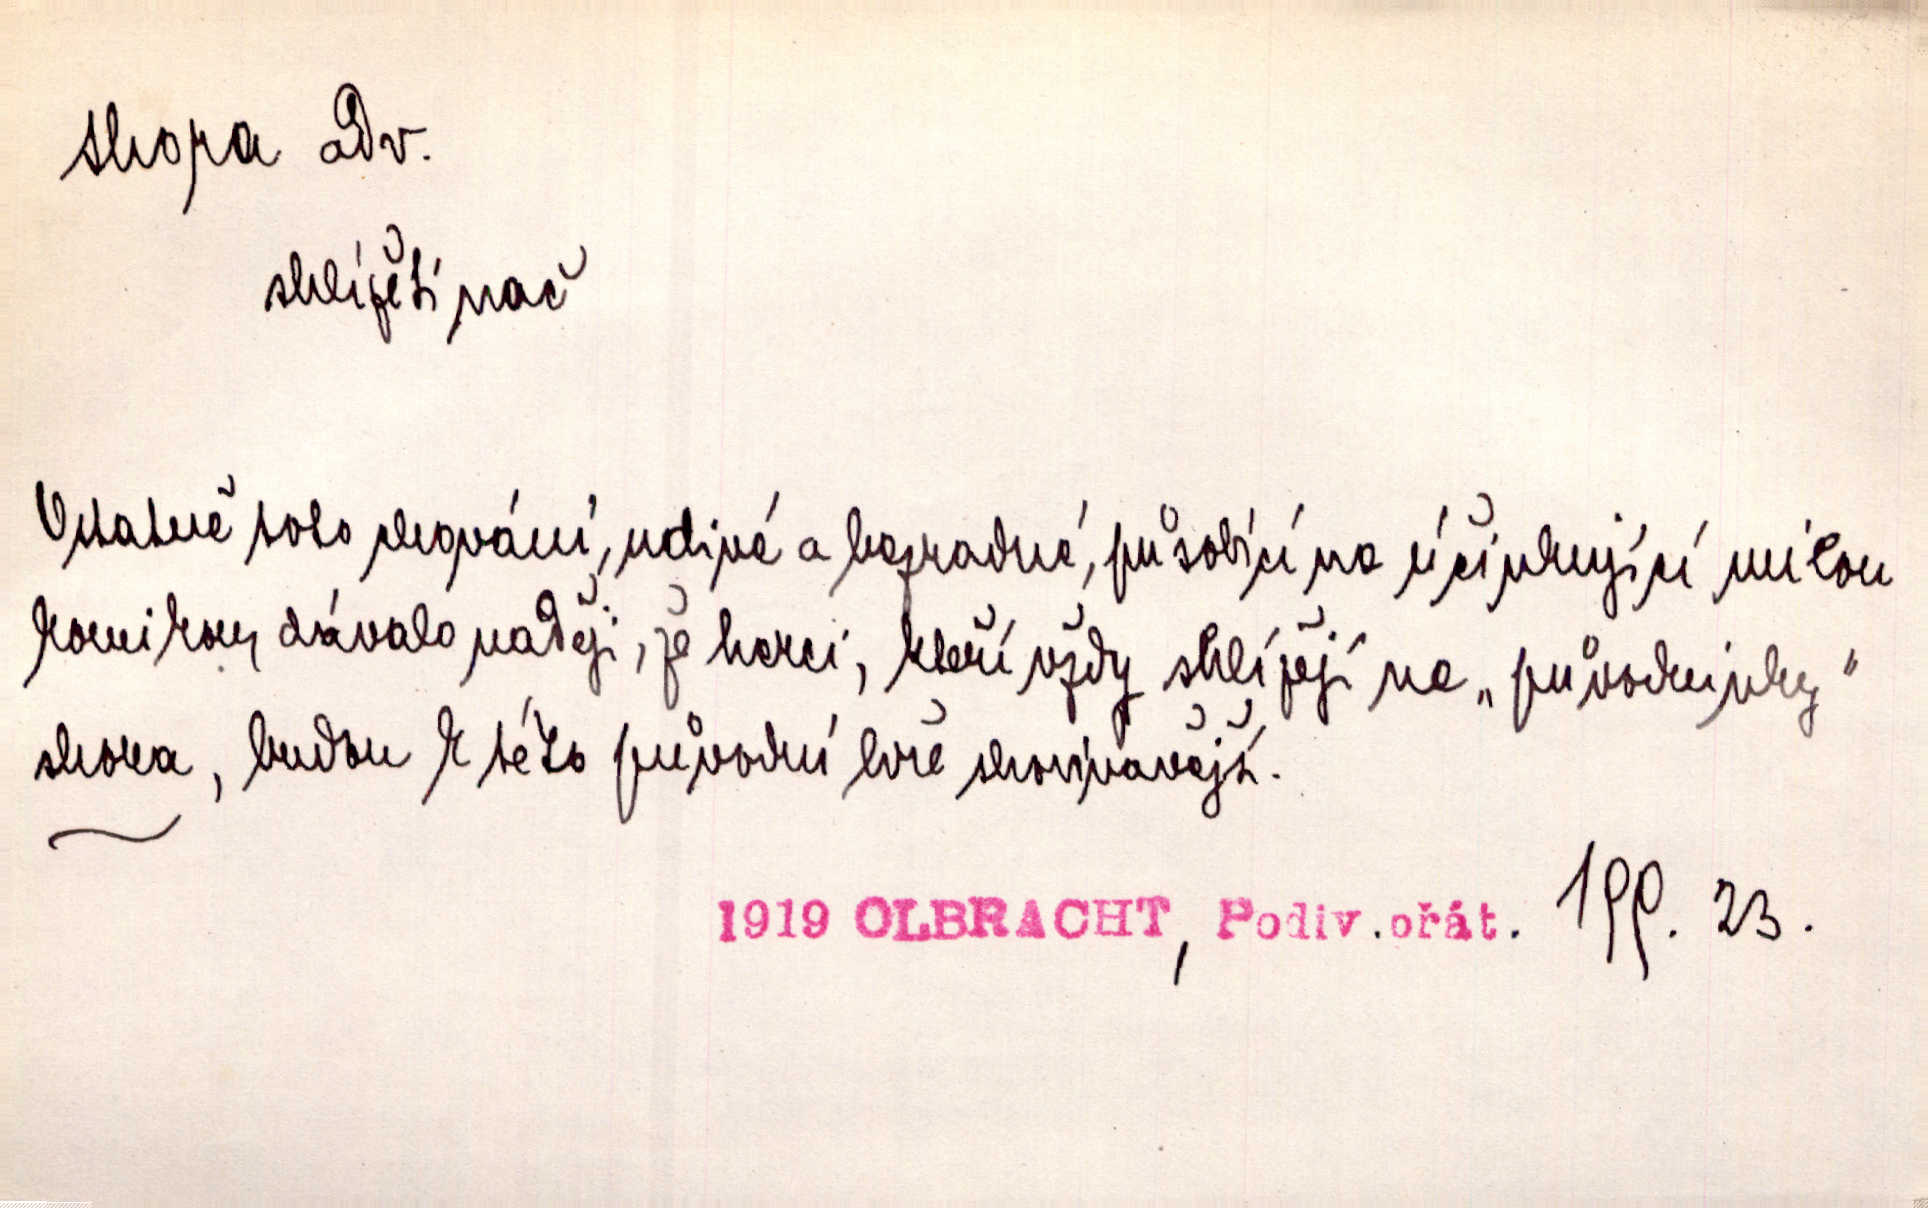 shora adv.
shlížeti nač
Ostatně toto chování, a bezradné, působící na účinkující milou
komikou dávalo naději, že herci, kteří vždy shlížejí na „původninky“
shora, budou k této původní hře shovívavější.
1919 OLBRACHT, Podiv.přát. 199. 23.